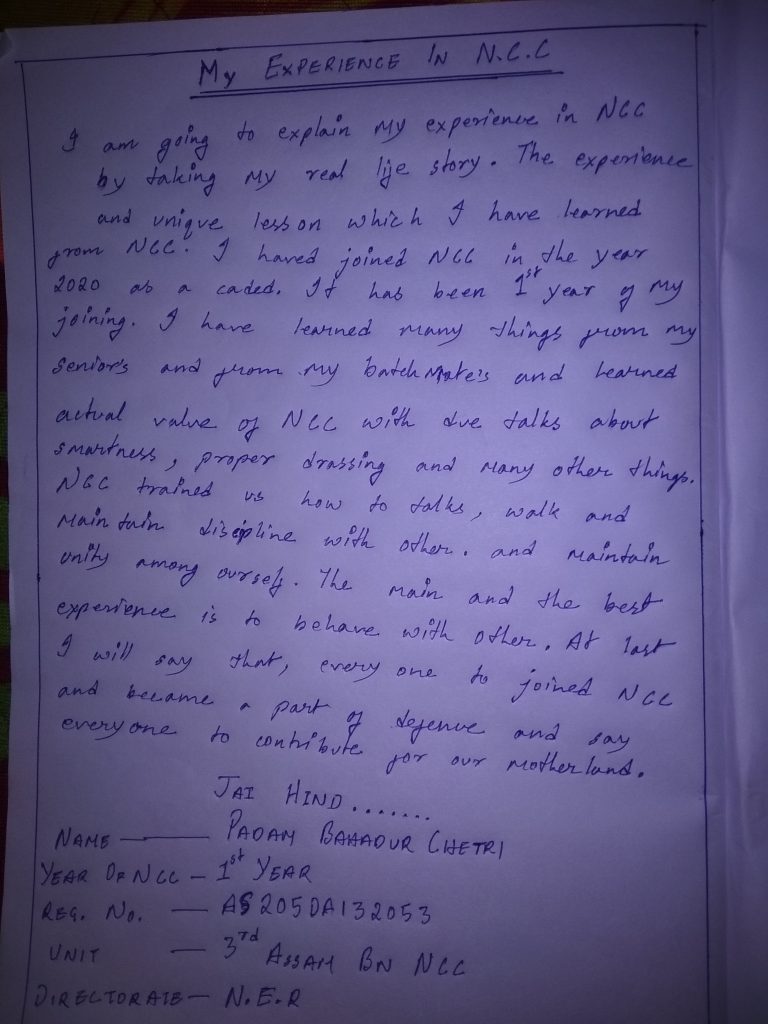 My EXPERIENCE IN N.C.C
I am going to explain my experience in NCC
by taking my real life story. The experience
and unique lesson which I have learned
from NCC. I haved joined NCC in the year
2020 as a caded. It has been 1st year of my
joining. I have learned many things from my
senior's and from my batch mate's and learned
actual value of NCC with due talks about
smartness, proper drassing and many other things.
NCC trained us how to talks, walk and
maintain discipline with other. and maintain
unity among ourself. The main and the best
experience is to behave with other. At last
I will say that, every one to joined NCC
and became a part of defence and say
everyone to contribute for our motherland.
JAI HIND.......
NAME — PADAM BAHADUR CHETRI
YEAR OF NCC — 1st YEAR
REG. NO. — AS205DA132053
UNIT — 3rd ASSAM BN NCC
DIRECTORATE — N.E.R